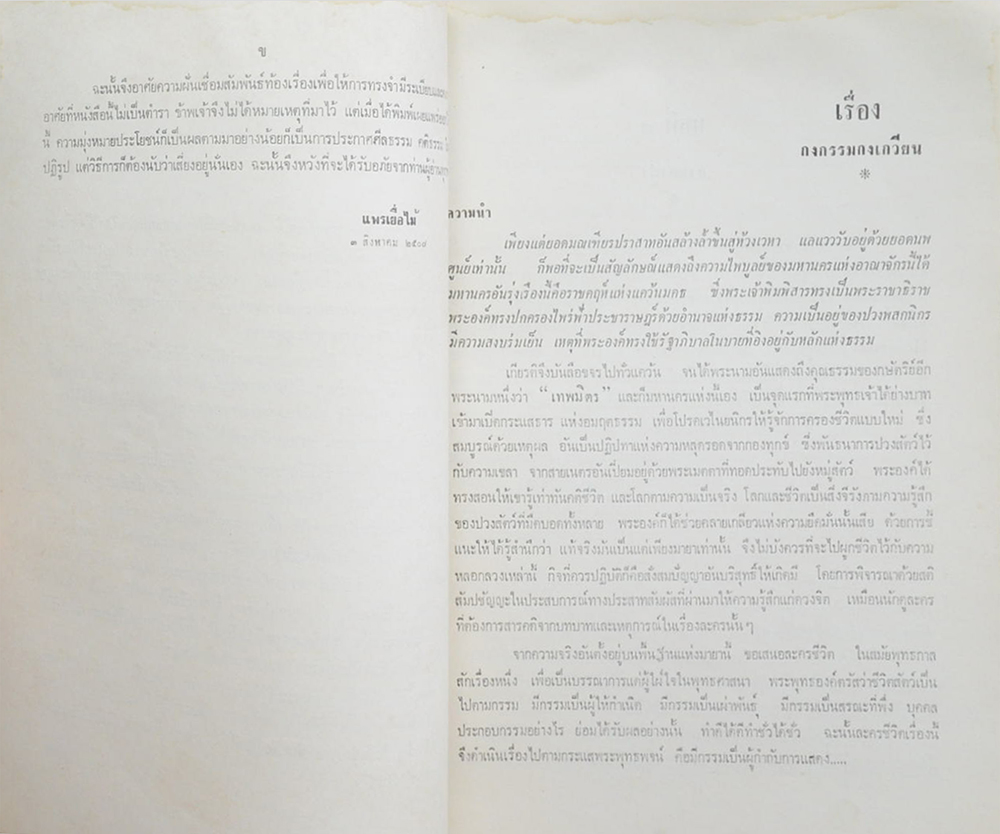 ข
ฉะนั้นจึงอาศัยความฝันเชื่อมสัมพันธ์ท้องเรื่องเพื่อให้การทรงจำมีระเบียบ
อาศัยที่หนังสือนี้ไม่เป็นตำรา ข้าพเจ้าจึงไม่ได้หมายเหตุที่มาไว้ แต่เมื่อได้พิมพ์เผยแพร่
นี้ ความมุ่งหมายประโยชน์ก็เป็นผลตามมาอย่างน้อยก็เป็นการประกาศศีลธรรม คติธรรม
ปฏิรูป แต่วิธีการก็ต้องนับว่าเสี่ยงอยู่นั่นเอง ฉะนั้นจึงหวังที่จะได้รับอภัยจากท่านผู้อ่าน
แพรเยื่อไม้
๓ สิงหาคม ๒๕๐๘
เรื่อง
กงกรรมกงเกวียน
ความนำ
เพียงแต่ยอดมณเฑียรปราสาทอันสล้างล้ำขึ้นสู่ห้วงเวหา แลแวววับอยู่ด้วยยอดนพ
ศูนย์เท่านั้น ก็พอที่จะเป็นสัญลักษณ์แสดงถึงความไพบูลย์ของมหานครแห่งอาณาจักรนี้ได้
มหานครอันรุ่งเรืองนี้คือราชคฤห์แห่งแคว้นมคธ ซึ่งพระเจ้าพิมพิสารทรงเป็นพระราชาธิราช
พระองค์ทรงปกครองไพร่ฟ้าประชาราษฎร์ด้วยอำนาจแห่งธรรม ความเป็นอยู่ของปวงพสกนิกร
มีความสงบร่มเย็น เหตุที่พระองค์ทรงใช้รัฐาภิบาลในบายที่อิงอยู่กับหลักแห่งธรรม
เกียรติจึงบันลือขจรไปทั่วแคว้น จนได้พระนามอันแสดงถึงคุณธรรมของกษัตริย์อีก
พระนามหนึ่งว่า “เทพมิตร” และก็มหานครแห่งนี้เอง เป็นจุดแรกที่พระพุทธเจ้าได้ย่างบาท
เข้ามาเบิกกระแสธาร แห่งอมฤตธรรม เพื่อโปรดเวไนยนิกรให้รู้จักการครองชีวิตแบบใหม่ ซึ่ง
สมบูรณ์ด้วยเหตุผล อันเป็นปฏิปทาแห่งความหลุดรอดจากกองทุกข์ ซึ่งพันธนาการปวงสัตว์ไว้
กับความเขลา จากสายเนตรอันเปี่ยมอยู่ด้วยพระเมตตาที่ทอดประทับไปยังหมู่สัตว์ พระองค์ได้
ทรงสอนให้เขารู้เท่าทันคติชีวิต และโลกตามความเป็นจริง โลกและชีวิตเป็นสิ่งจีรังตามความรู้สึก
ของปวงสัตว์ที่มืดบอดทั้งหลาย พระองค์ก็ได้ช่วยคลายเกลียวแห่งความยึดมั่นนั้นเสีย ด้วยการชี้
แนะให้ได้รู้สำนึกว่า แท้จริงมันเป็นแต่เพียงมายาเท่านั้น จึงไม่บังควรที่จะไปผูกชีวิตไว้กับความ
หลอกลวงเหล่านี้ กิจที่ควรปฏิบัติก็คือสั่งสมปัญญาอันบริสุทธิ์ให้เกิดมี โดยการพิจารณาด้วยสติ
สัมปชัญญะในประสบการณ์ทางประสาทสัมผัสที่ผ่านมาให้ความรู้สึกแก่ดวงจิต เหมือนนักดูละคร
ที่ต้องการสารคติจากบทบาทและเหตุการณ์ในเรื่องละครนั้น ๆ
จากความจริงอันตั้งอยู่บนพื้นฐานแห่งมายานี้ ขอเสนอละครชีวิต ในสมัยพุทธกาล
สักเรื่องหนึ่ง เพื่อเป็นบรรณาการแด่ผู้ใฝ่ใจในพุทธศาสนา พระพุทธองค์ตรัสว่าชีวิตสัตว์เป็น
ไปตามกรรม มีกรรมเป็นผู้ให้กำเนิด มีกรรมเป็นเผ่าพันธุ์ มีกรรมเป็นสรณะที่พึ่ง บุคคล
ประกอบกรรมอย่างไร ย่อมได้รับผลอย่างนั้น ทำดีได้ดีทำชั่วได้ชั่ว ฉะนั้นละครชีวิตเรื่องนี้
จึงดำเนินเรื่องไปตามกระแสพระพุทธพจน์ คือมีกรรมเป็นผู้กำกับการแสดง.....